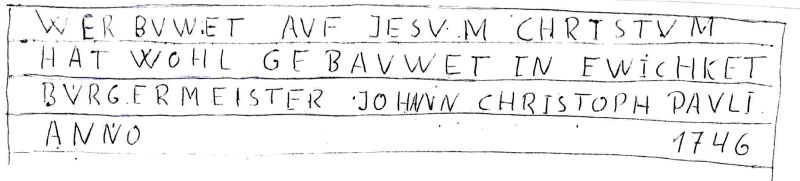 WER BVWET AVF JESVM CHRISTVM
HAT WOHL GEBAVWET IN EWiCHKET
BVRGERMEISTER JOHANN CHRISTOPH PAVLI
ANNO 1746